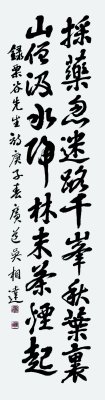 採藥忽迷路千峯秋葉裏
山僧汲水歸林末茶煙起
錄栗谷先生詩庚子春廣道吳相達